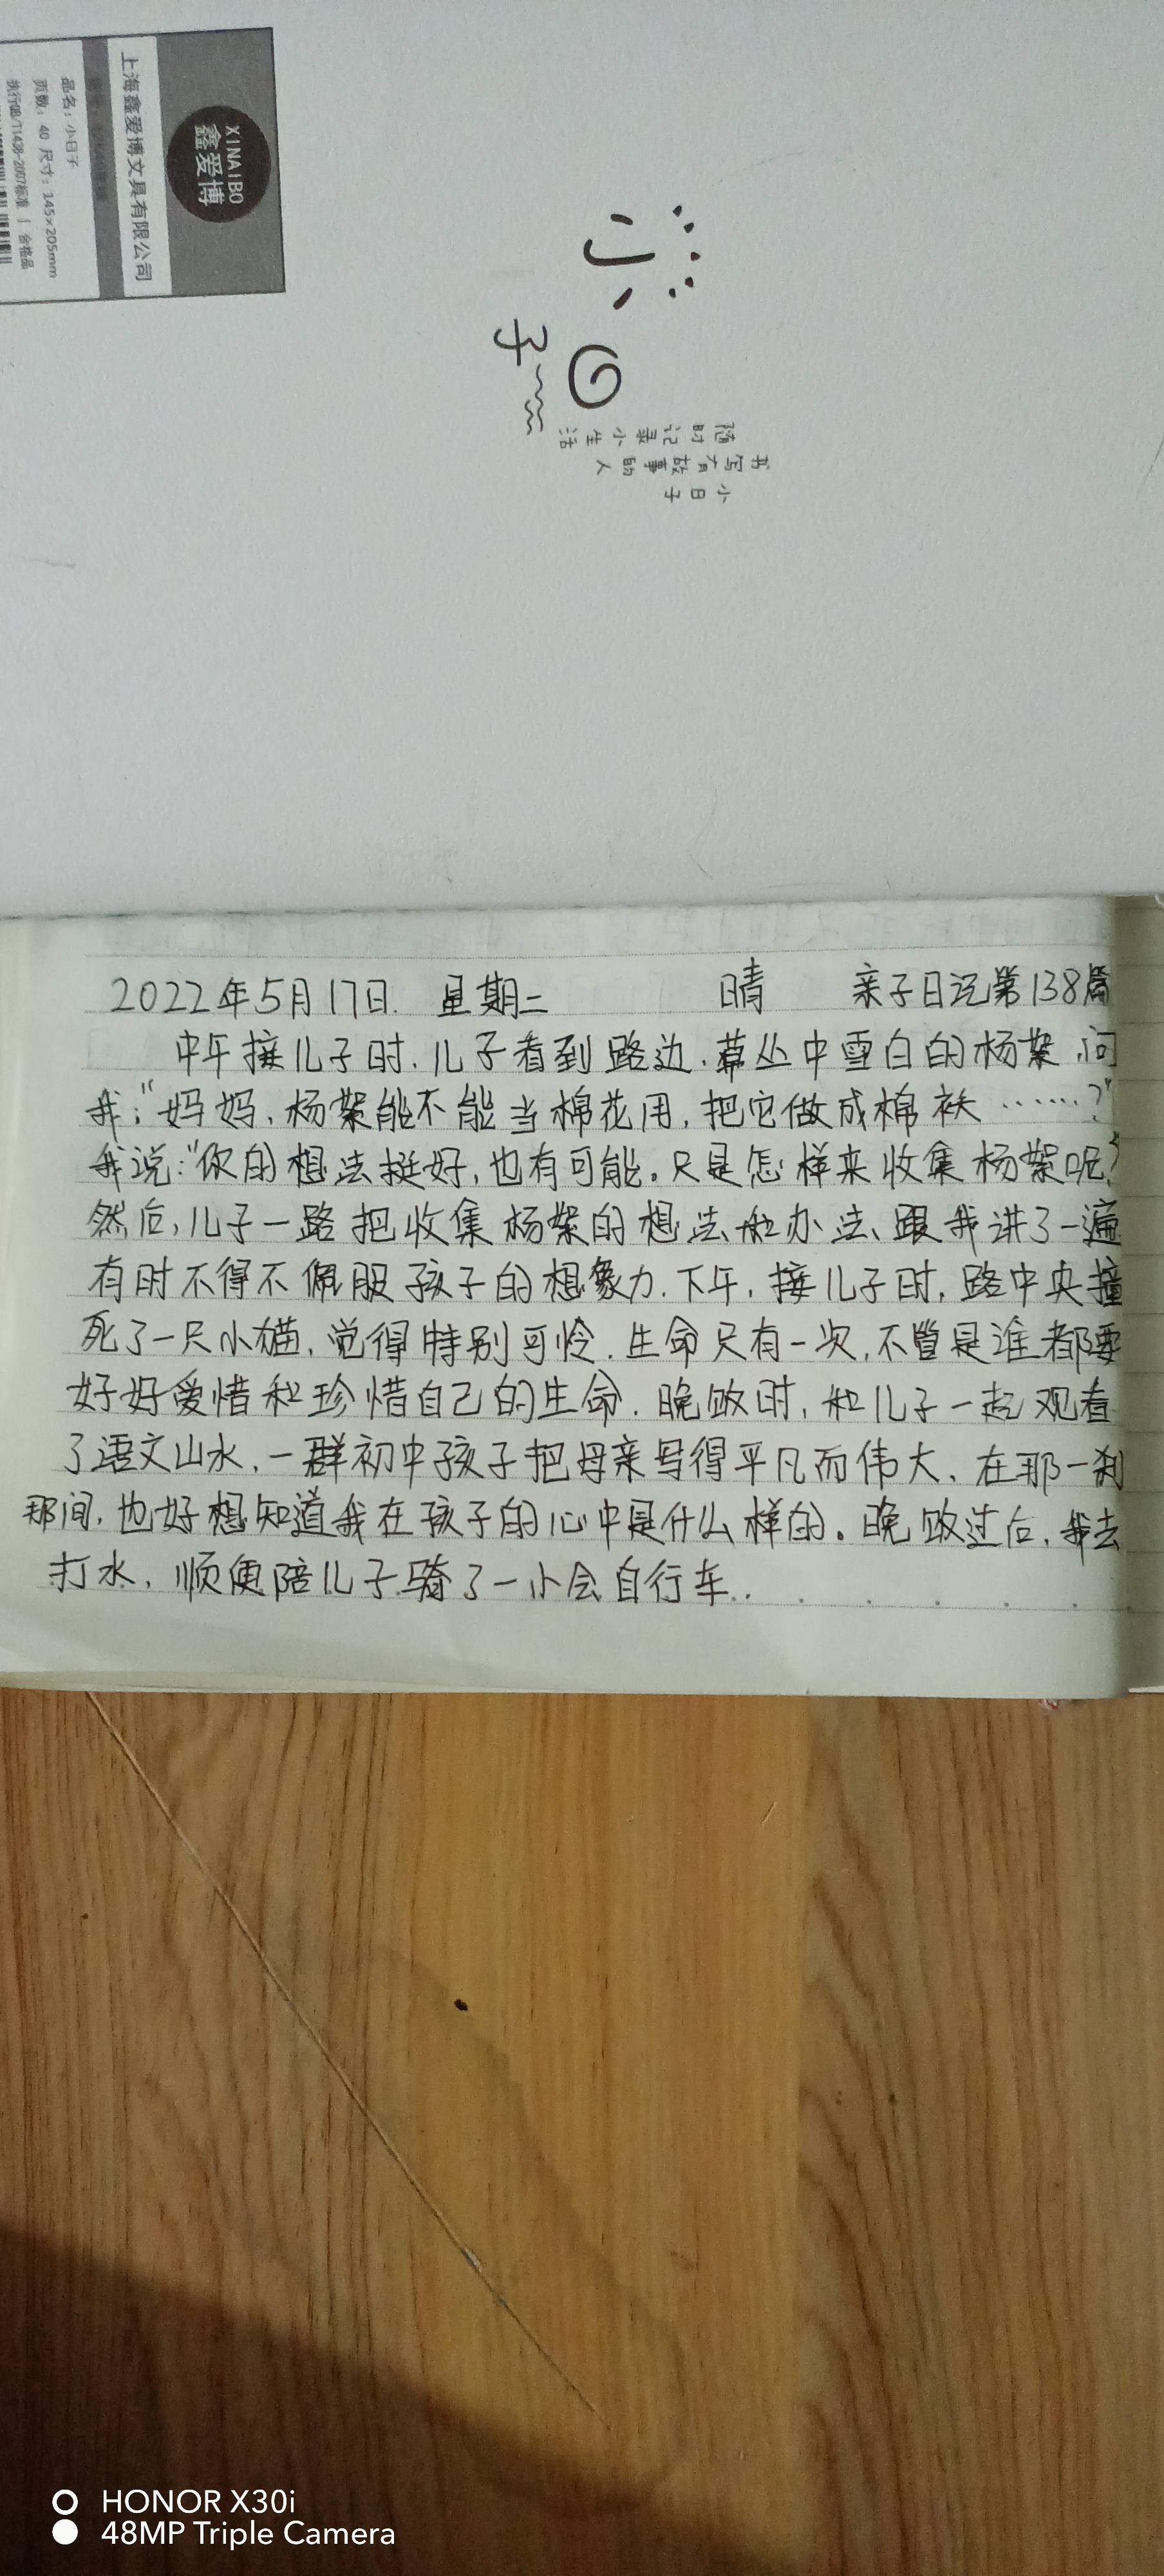 XINAIBO
鑫爱博
上海鑫爱博文具有限公司
品名：小日子
页数：40 尺寸：145×205mm
执行QB/T1438-2007标准 | 合格品
小日子
随时记录小生活
书写有故事的人
小日子
2022年5月17日. 星期二 晴 亲子日记第138篇
中午接儿子时.儿子看到路边.草丛中雪白的杨絮,问
我:"妈妈,杨絮能不能当棉花用,把它做成棉袄……?"
我说:"你的想法挺好,也有可能。只是怎样来收集杨絮呢?"
然后,儿子一路把收集杨絮的想法和办法、跟我讲了一遍
有时不得不佩服孩子的想象力.下午,接儿子时,路中央撞
死了一只小猫,觉得特别可怜.生命只有一次,不管是谁都要
好好爱惜和珍惜自己的生命.晚饭时,和儿子一起观看
了语文山水,一群初中孩子把母亲写得平凡而伟大、在那一刹
那间,也好想知道我在孩子的心中是什么样的。晚饭过后,我去
打水,顺便陪儿子骑了一小会自行车..
HONOR X30i
48MP Triple Camera